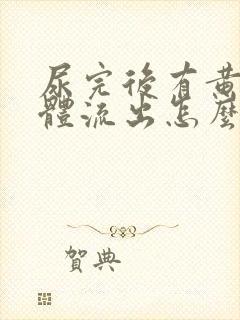 尿完後有黃
體流出怎麼
賀典